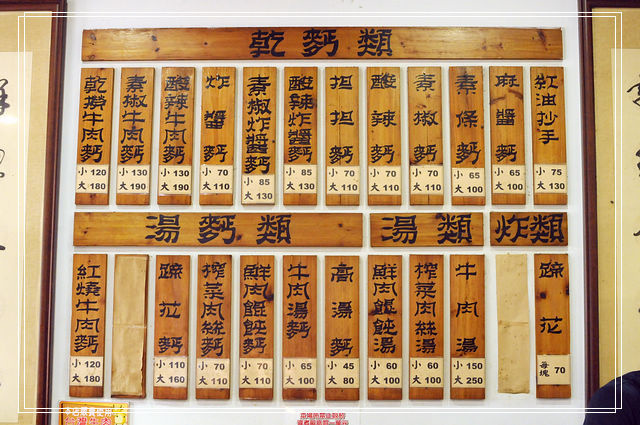 乾麵類
乾撈牛肉麵
小 120
大 180
素椒牛肉麵
小 130
大 190
酸辣牛肉麵
小 130
大 190
炸醬麵
小 70
大 110
素椒炸醬麵
小 85
大 130
酸辣炸醬麵
小 85
大 130
担担麵
小 70
大 110
酸辣麵
小 70
大 110
素椒麵
小 70
大 110
素條麵
小 65
大 100
麻醬麵
小 65
大 100
紅油抄手
小 75
大 130
湯麵類
紅燒牛肉麵
小 120
大 180
蹄花麵
小 110
大 160
榨菜肉絲麵
小 70
大 110
鮮肉餛飩麵
小 70
大 110
牛肉湯麵
小 65
大 100
高湯麵
小 45
大 80
湯類
鮮肉餛飩湯
小 60
大 100
榨菜肉絲湯
小 60
大 100
牛肉湯
小 150
大 250
炸類
蹄花
每塊 70